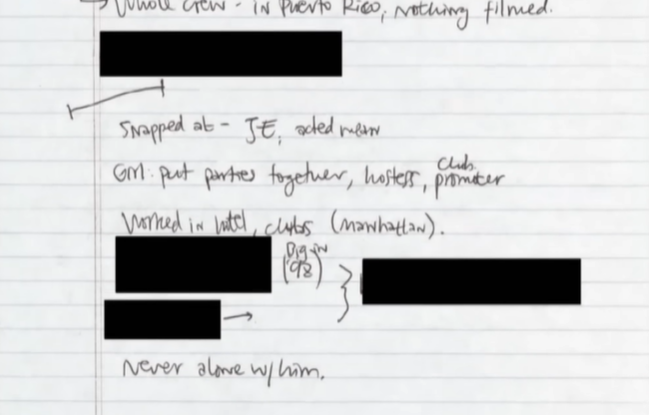 → Whole crew - in Puerto Rico, nothing filmed.
Snapped at - JE, acted mean
GM: put parties together, hostess, club promoter
Worked in hotel, clubs (Manhattan).
('98)
→
Never alone w/him.